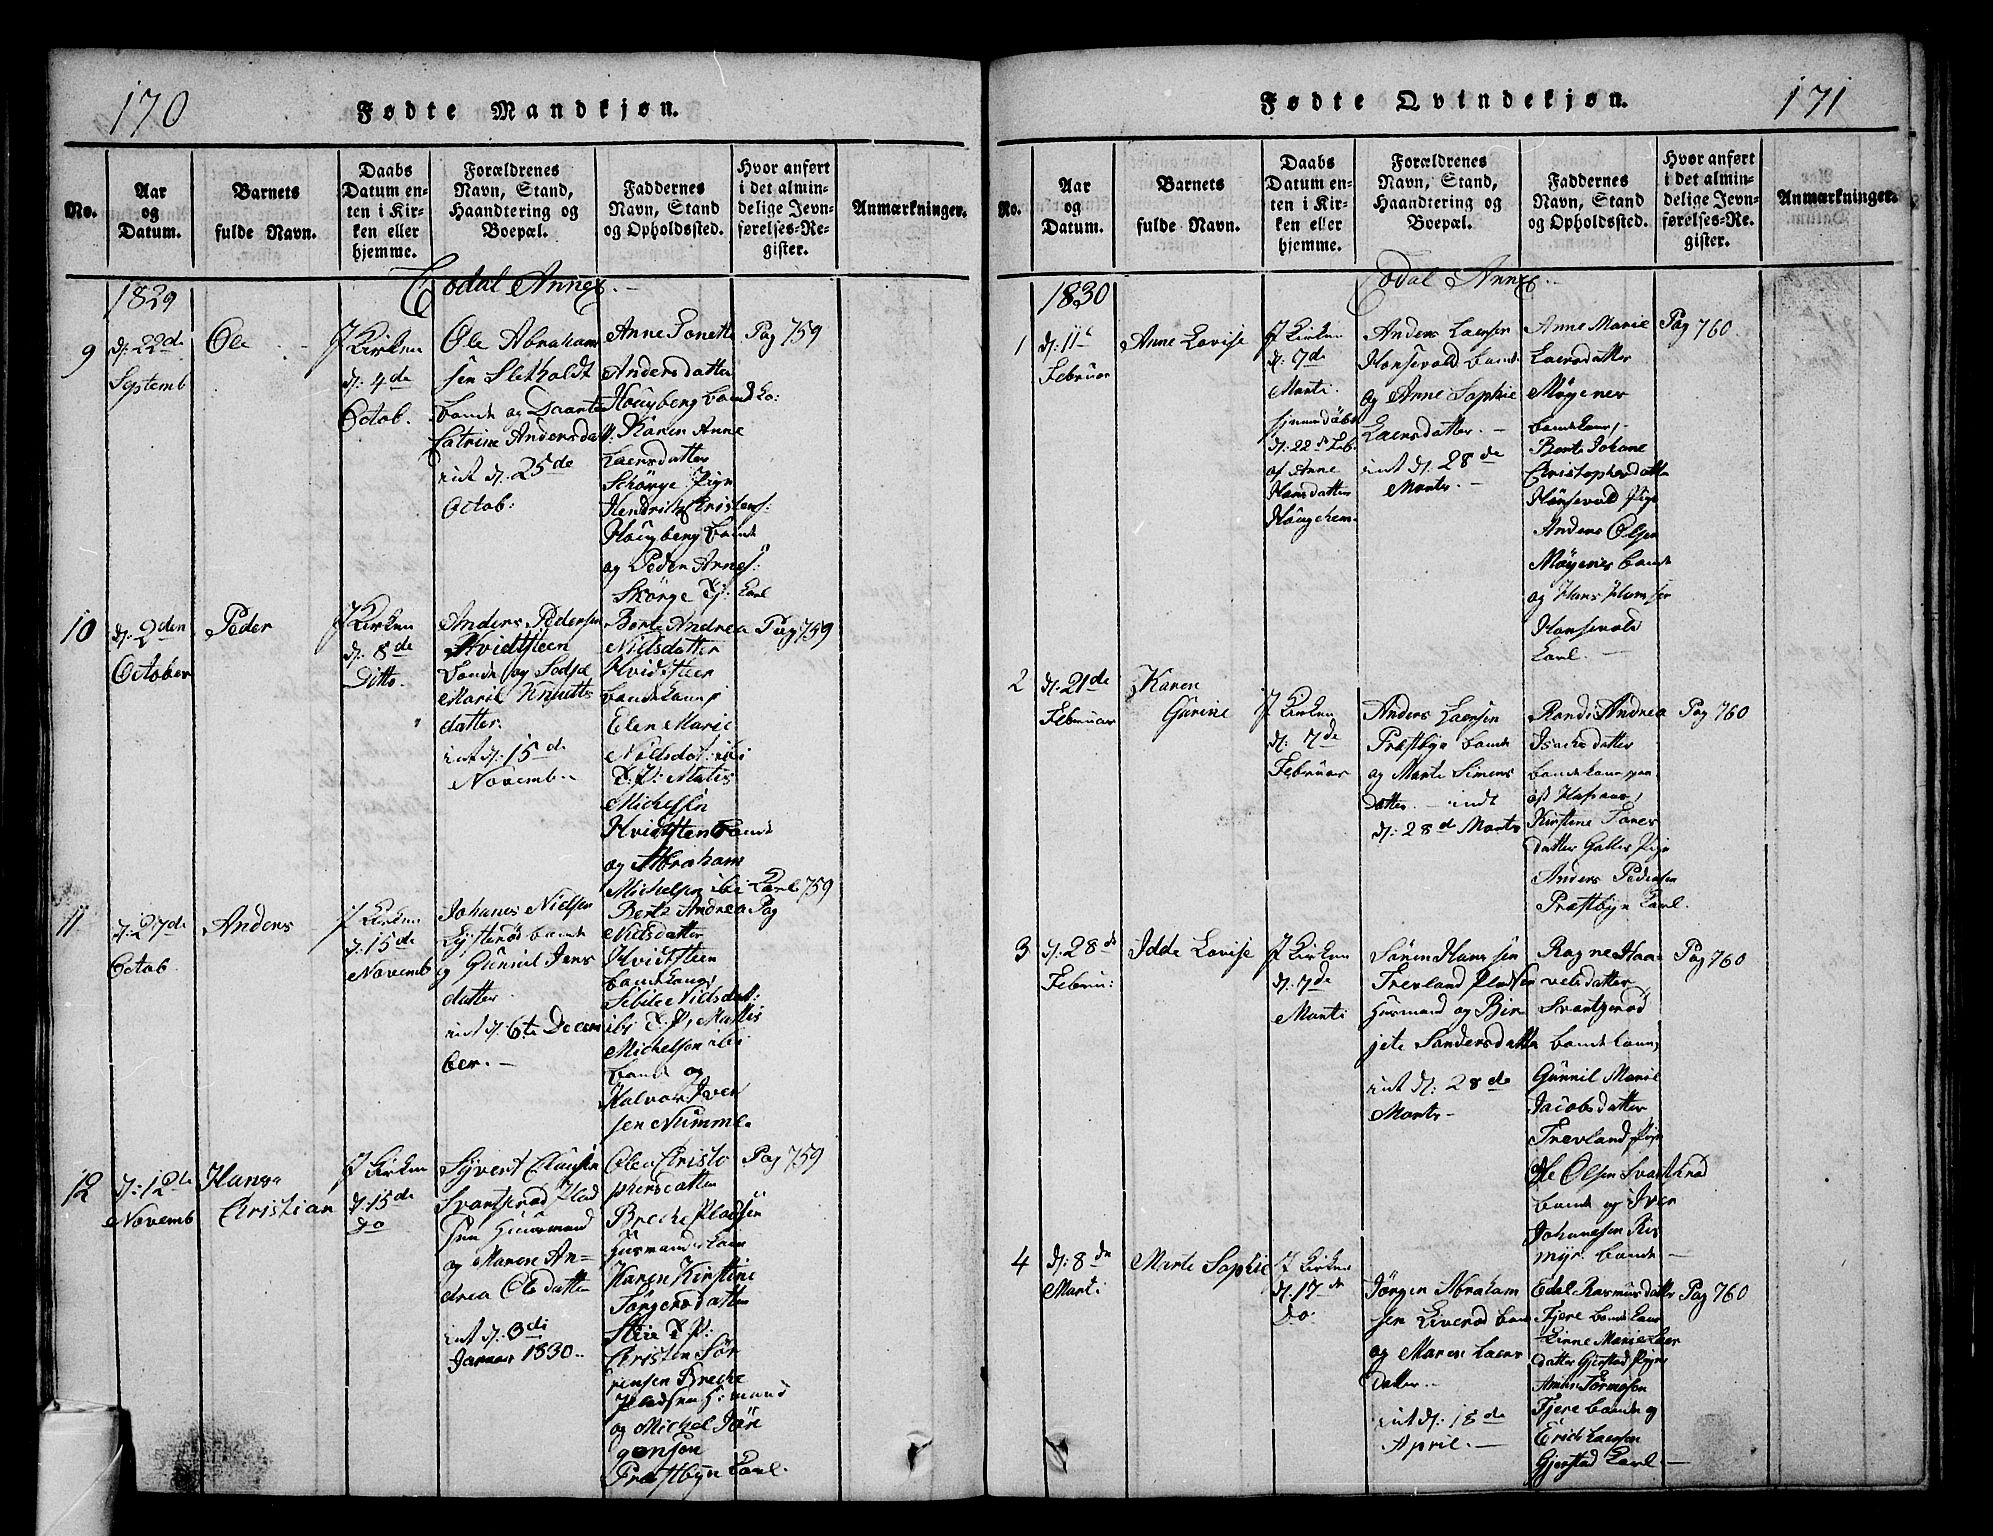 170
Fødte Mandkjøn.
No.
Aar
og
Datum.
Barnets
fulde Navn.
Daabs
Datum en-
ten i Kir-
ken eller
hjemme.
Forældrenes
Navn, Stand,
Haandtering og
Boepæl.
Faddernes
Navn, Stand
og Opholdssted.
Hvor anført
i det almin-
delige Jevn-
førelses-Re-
gister.
Anmærkninger.
1829
Eodal Annex.
9
d: 22d
Septemb
Ole
J Kirken
d: 4de
Octob.
Ole Abraham
sen Sletholdt
bonde og
Catrine Andersdatt.
int d: 25de
Octob:
Anne Tonette
Andersdatter
Hougberg bonde ko:
Karen Anne
Laersdatter
Schörge Pige
Hendrich Cristens:
Hougberg bonde
og Peder Arnes:
Skörge Karl
Pag 759
10
d: 2den
October
Peder
J Kirken
d: 8de
Ditto.
Anders Pedersen
Hvidsteen
bonde og
Marie Knuts
datter.
int d: 15de
Novemb.
Berte Andrea
Nielsdatter
Hvidsteen
bondekone
Elen Marie
Nielsdat: ibi
T. P: Matis
Michelsen
Hvidsten bonde
og Abraham
Michelsen ibi Karl
Pag 759
11
d: 27de
Octob.
Anders
J Kirken
d: 15de
Novemb
Johanes Nielsen
bonde
og Gunnil Jens
datter.
int d: 6te Decem
ber.
Berte Andrea
Nielsdatter
Hvidsteen
bondekone
Sibile Nielsdatt:
ibi T. P, Mattis
Michelsen ibi
bonde og
Halvor Iver
sen Numme.
Pag 759
12
d: 12de
Novemb
Hans
Cristian
J Kirken
d: 15de
do
Syvert Clausen
Svartserød Plad
sen Huusmand
og Maren An-
drea Olsdatter
int d: 3di
Januar 1830.
Olea Cristo
phersdatter
Brecke Pladsen
Husmandskone
Karen Kirstine
Törgersdatter
T. P:
Cristen Sör
rensen Brecke
Pladsen H: mand
og Michel Jör
gensen
Præstbyn Karl.
Pag 759
171
Fødte Qvindekjøn.
No.
Aar
og
Datum.
Barnets
fulde Navn.
Daabs
Datum en-
ten i Kir-
ken eller
hjemme.
Forældrenes
Navn, Stand,
Haandtering og
Boepæl.
Faddernes
Navn, Stand
og Opholdssted.
Hvor anført
i det almin-
delige Jevn-
førelses-Re-
gister.
Anmærkninger.
1830
Eodal Annex.
1
d: 11
Februar
Anne Lovise
J Kirken
d: 7de
Marti
hjemmedöbt
d: 22de Feb.
af Anne
Hansdatter
Hougehem
Anders Laersen
Honsevold bonde
og Anne Sophie
Laersdatter.
int d: 28de
Marts.
Anne Marie
Laersdatter
Möyener
bondekone,
Berte Johane
Cristophersdatter
Honsevold Pige
Anders Olsen
Möyenes bonde
og Hans
Honsevold
Karl.
Pag 760
2
d: 21de
Februar
Karen
Gurine
J Kirken
d: 7de
Februar
Anders Laersen
Præstbye bonde
og Marte Simens
datter. indt
d: 28d Marts
Randi Andrea
Isachsdatter
bondekone
Kirstine Tores
datter Galtes Pige
Anders Pedersen
Præstbyn Karl.
Pag 760
3
d: 28de
Februa:
Idde Lovise
J Kirken
d: 7de
Marti
Sören Hansen
Trevland Pladsen
Husmand og Bir
jete Sandersdatter
int d: 28de
Marts
Ragne Haa
velsdatter
Svartzerød
bondekone,
Gunnil Marie
Jacobsdatter
Trevland Pige
Ole Olsen Svartserød
bonde og Iver
Johannesen Ris
myr bonde
Pag 760
4
d: 8de
Marti
Marte Sophie
J Kirken
d: 17de
do.
Jörgen Abraham
sen Liverød bonde
og Maren Laers
datter.
int d: 18de
April.
Edel Rasmusdatter
Fjere bondekone
Linne Marie Laers
datter Gjerstad Pige
Tormosen
Fjere bonde og
Erich Laersen
Gjerstad Karl.
Pag 760